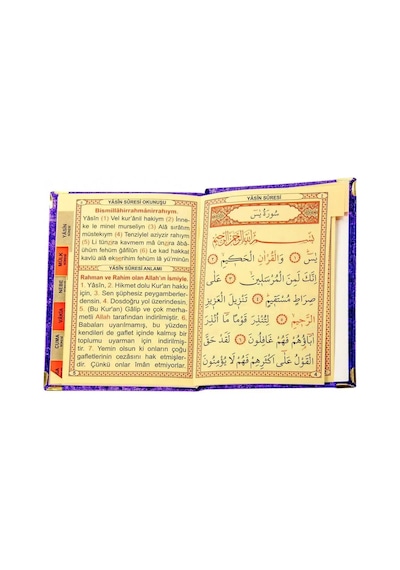 YÂSÎN SÛRESİ OKUNUŞU
Bismillâhirrahmânirrahıym.
Yâsîn (1) Vel kur'ânil hakiym (2) İnne-
ke le minel murselîyn (3) Alâ sırâtim
müstekıym (4) Tenziylel aziyzir rahıym
(5) Li tünzira kavmem mâ ünzira âbâ-
ühüm fehüm gâfilûn (6) Le kad hakkal
kavlü alâ ekserihim fehüm lâ yü'minûn
YÂSÎN SÛRESİ ANLAMI
Rahman ve Rahim olan Allah'ın İsmiyle.
1. Yâsîn, 2. Hikmet dolu Kur'an hakkı
için, 3. Sen şüphesiz peygamberler-
densin. 4. Dosdoğru yol üzerindesin.
5. (Bu Kur'an) Gâlip ve çok merha-
metli Allah tarafından indirilmiştir. 6.
Babaları uyarılmamış, bu yüzden
kendileri de gaflet içinde kalmış bir
toplumu uyarman için indirilmiş-
tir. 7. Yemin olsun ki onların çoğu
gafletlerinin cezâsını hak etmişler-
dir. Çünkü onlar îmân etmiyorlar.
YÂSÎN
MÜLK
NEBE
VÂKIA
CUMA
YÂSÎN SÛRESİ
سُورَةُ يٰسٓ
بِسْمِ اللّٰهِ الرَّحْمٰنِ الرَّحِيمِ
يٰسٓ ١ وَالْقُرْاٰنِ الْحَكِيمِ ٢
اِنَّكَ لَمِنَ الْمُرْسَلِينَ ٣ عَلٰى
صِرَاطٍ مُسْتَقِيمٍ ٤ تَنْزِيلَ الْعَزِيزِ
الرَّحِيمِ ٥ لِتُنْذِرَ قَوْمًا مَٓا اُنْذِرَ
اٰبَٓاؤُهُمْ فَهُمْ غَافِلُونَ ٦ لَقَدْ حَقَّ
الْقَوْلُ عَلٰٓى اَكْثَرِهِمْ فَهُمْ لَا يُؤْمِنُونَ
4